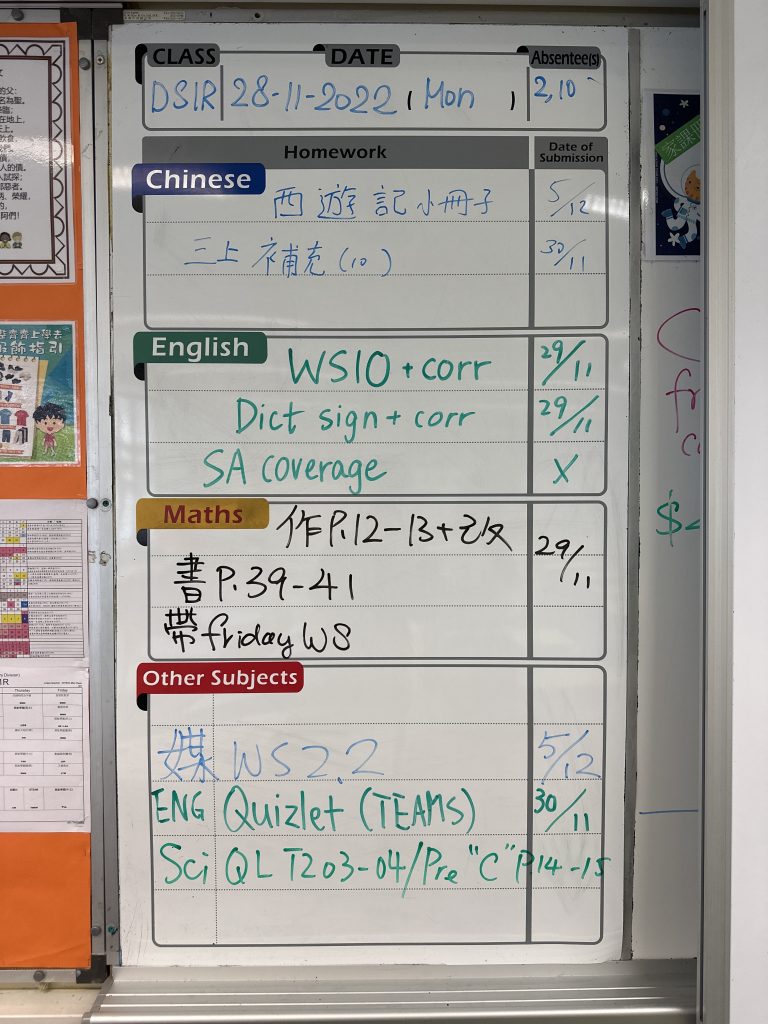 CLASS DATE Absentee(s)
DSIR 28-11-2022 (Mon) 2,10
Homework Date of Submission
Chinese
西遊記小冊子 5/12
三上 補充(10) 30/11
English
WS10 + corr 29/11
Dict sign + corr 29/11
SA coverage X
Maths
作P.12-13+改 29/11
書 P.39-41
帶friday WS
Other Subjects
媒 WS2.2 5/12
ENG Quizlet (TEAMS) 30/11
Sci QL T203-04/Pre "C" P.14-15
家課冊
整齊齊上學去
服飾指引
Thursday Friday